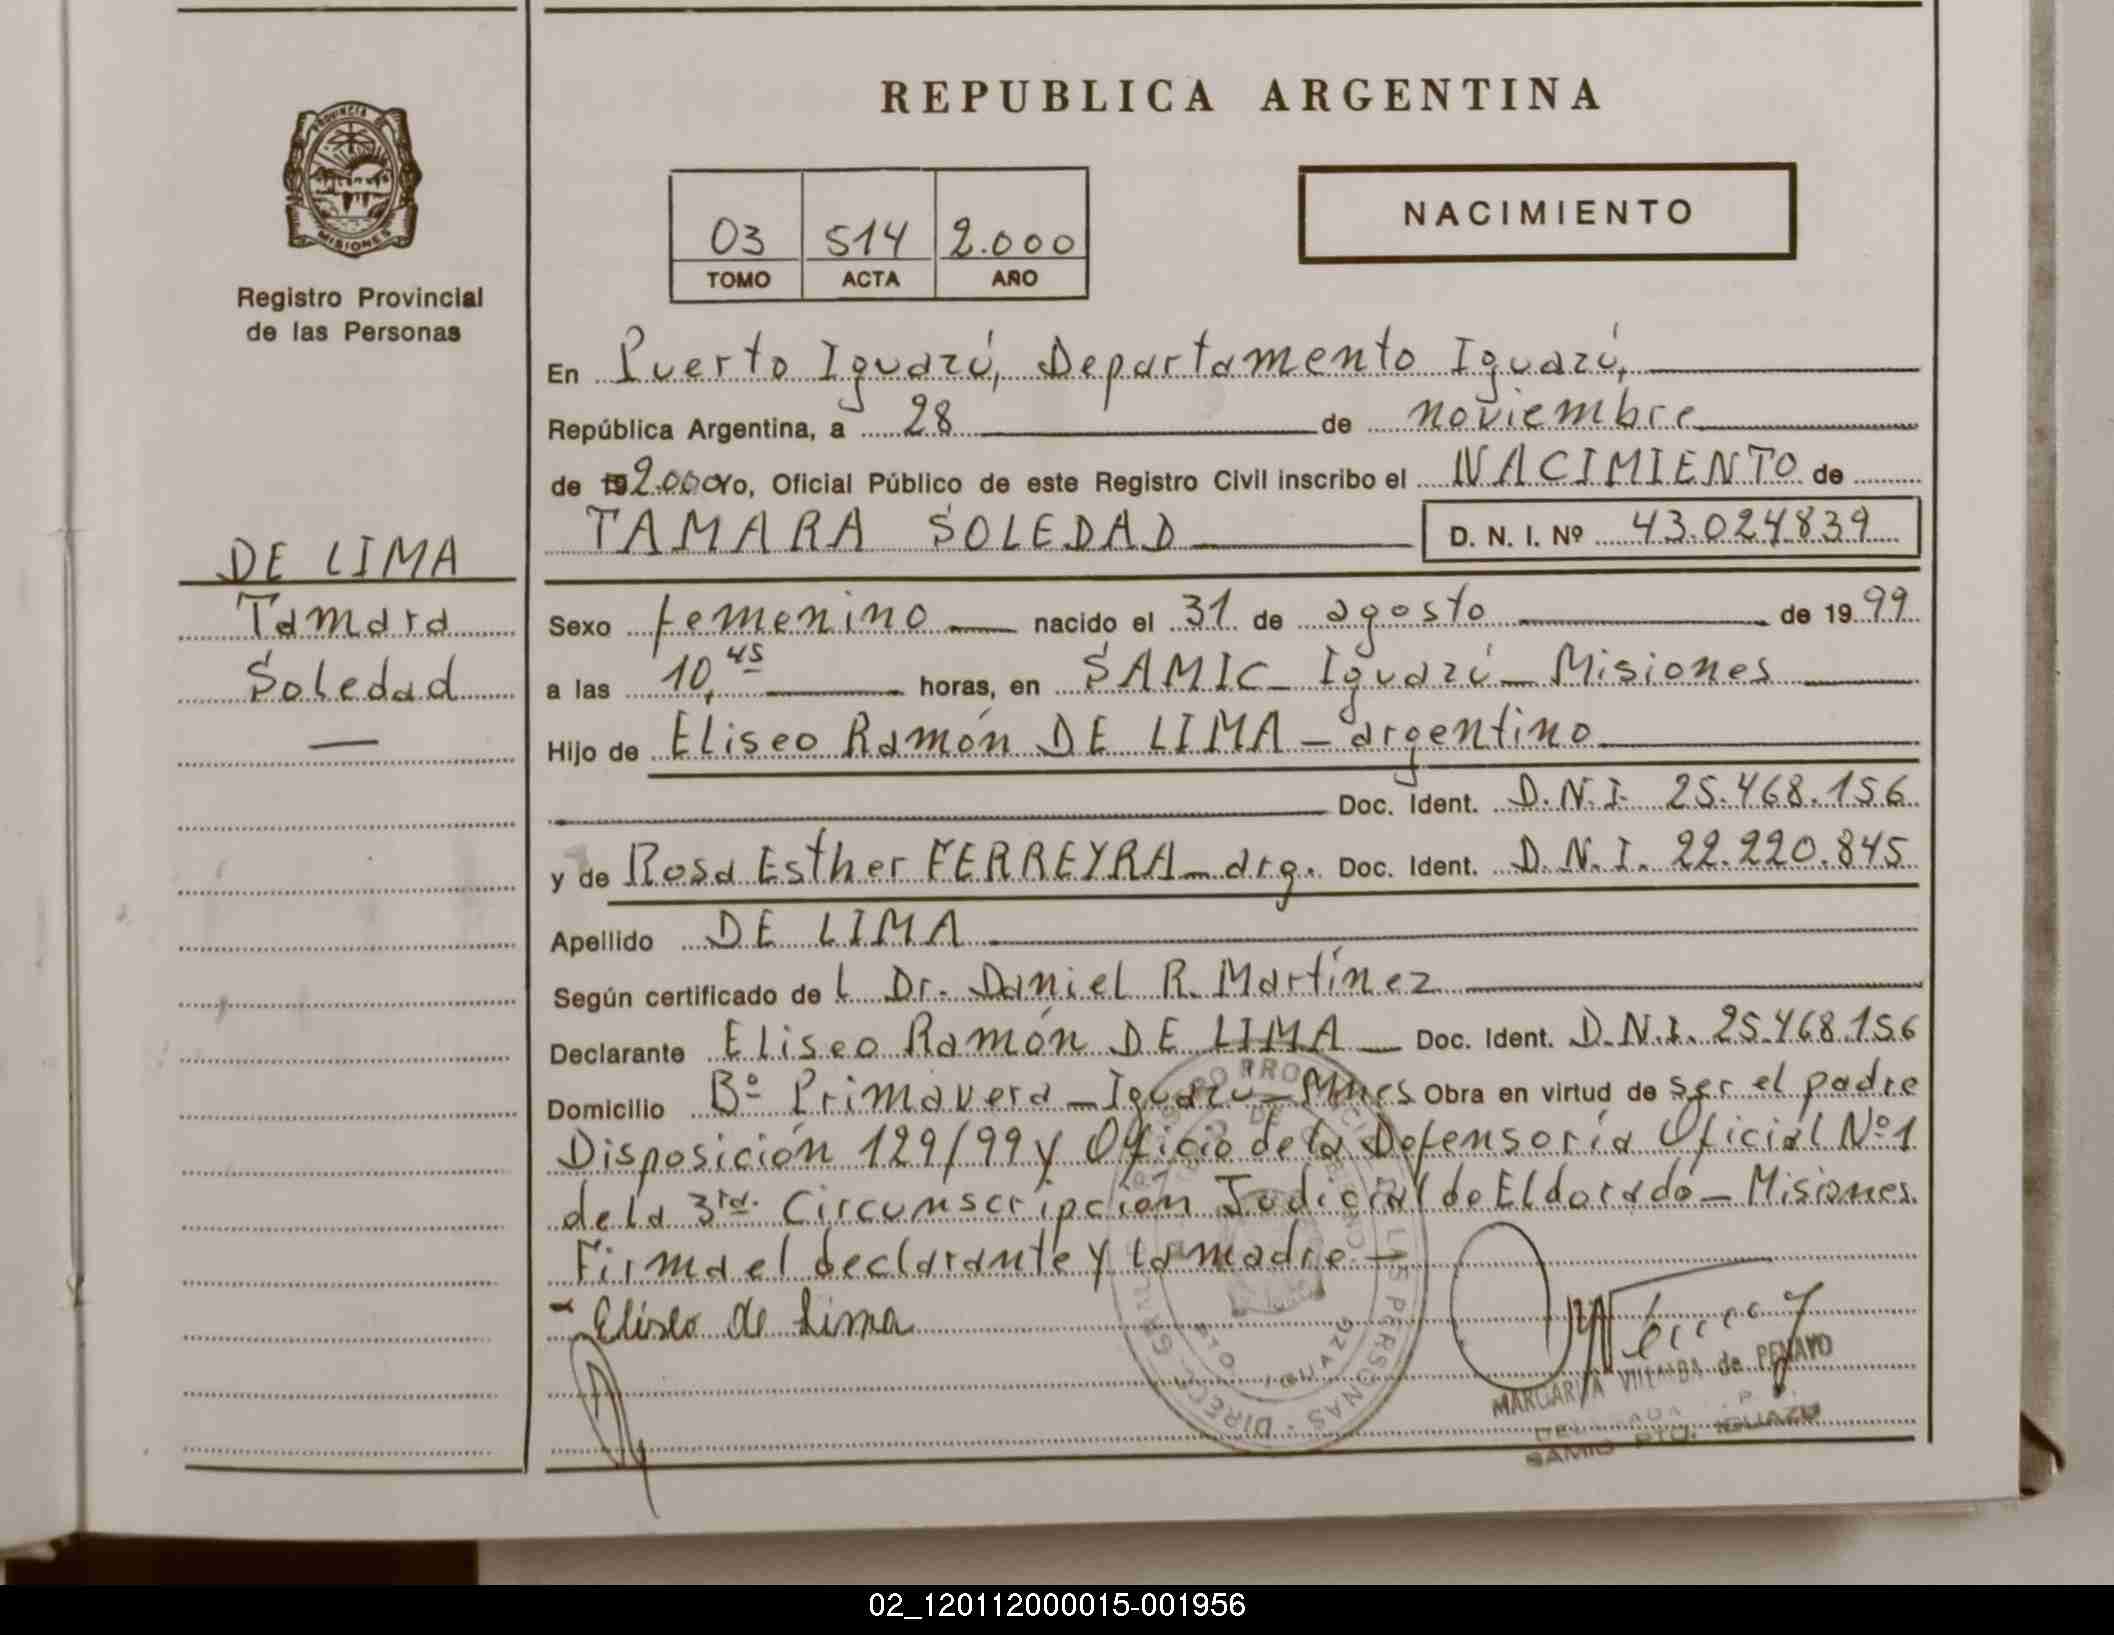 REPUBLICA ARGENTINA
PROVINCIA DE
MISIONES
Registro Provincial
de las Personas
03 514 2.000
TOMO ACTA AÑO
NACIMIENTO
En Puerto Iguazú, Departamento Iguazú,
República Argentina, a 28 de noviembre
de 192.000 yo, Oficial Público de este Registro Civil inscribo el NACIMIENTO de
TAMARA SOLEDAD D. N. I. Nº 43.024839
DE LIMA
Tamara
Soledad
Sexo femenino nacido el 31 de agosto de 1999
a las 10,45 horas, en SAMIC - Iguazú - Misiones
Hijo de Eliseo Ramón DE LIMA - argentino
Doc. Ident. D.N.I. 25.468.156
y de Rosa Esther FERREYRA - arg. Doc. Ident. D.N.I. 22.220.845
Apellido DE LIMA
Según certificado del Dr. Daniel R. Martínez
Declarante Eliseo Ramón DE LIMA Doc. Ident. D.N.I. 25.468.156
Domicilio Bº Primavera - Iguazú - Mnes Obra en virtud de ser el padre
Disposición 129/99 y Oficio de la Defensoría Oficial Nº 1
de la 3ra. Circunscripción Judicial de Eldorado - Misiones.
Firma el declarante y la madre. -
- Eliseo de Lima
MARGARITA VILLALBA de PENAYO
SAMIC PTO. IGUAZU
02_120112000015-001956